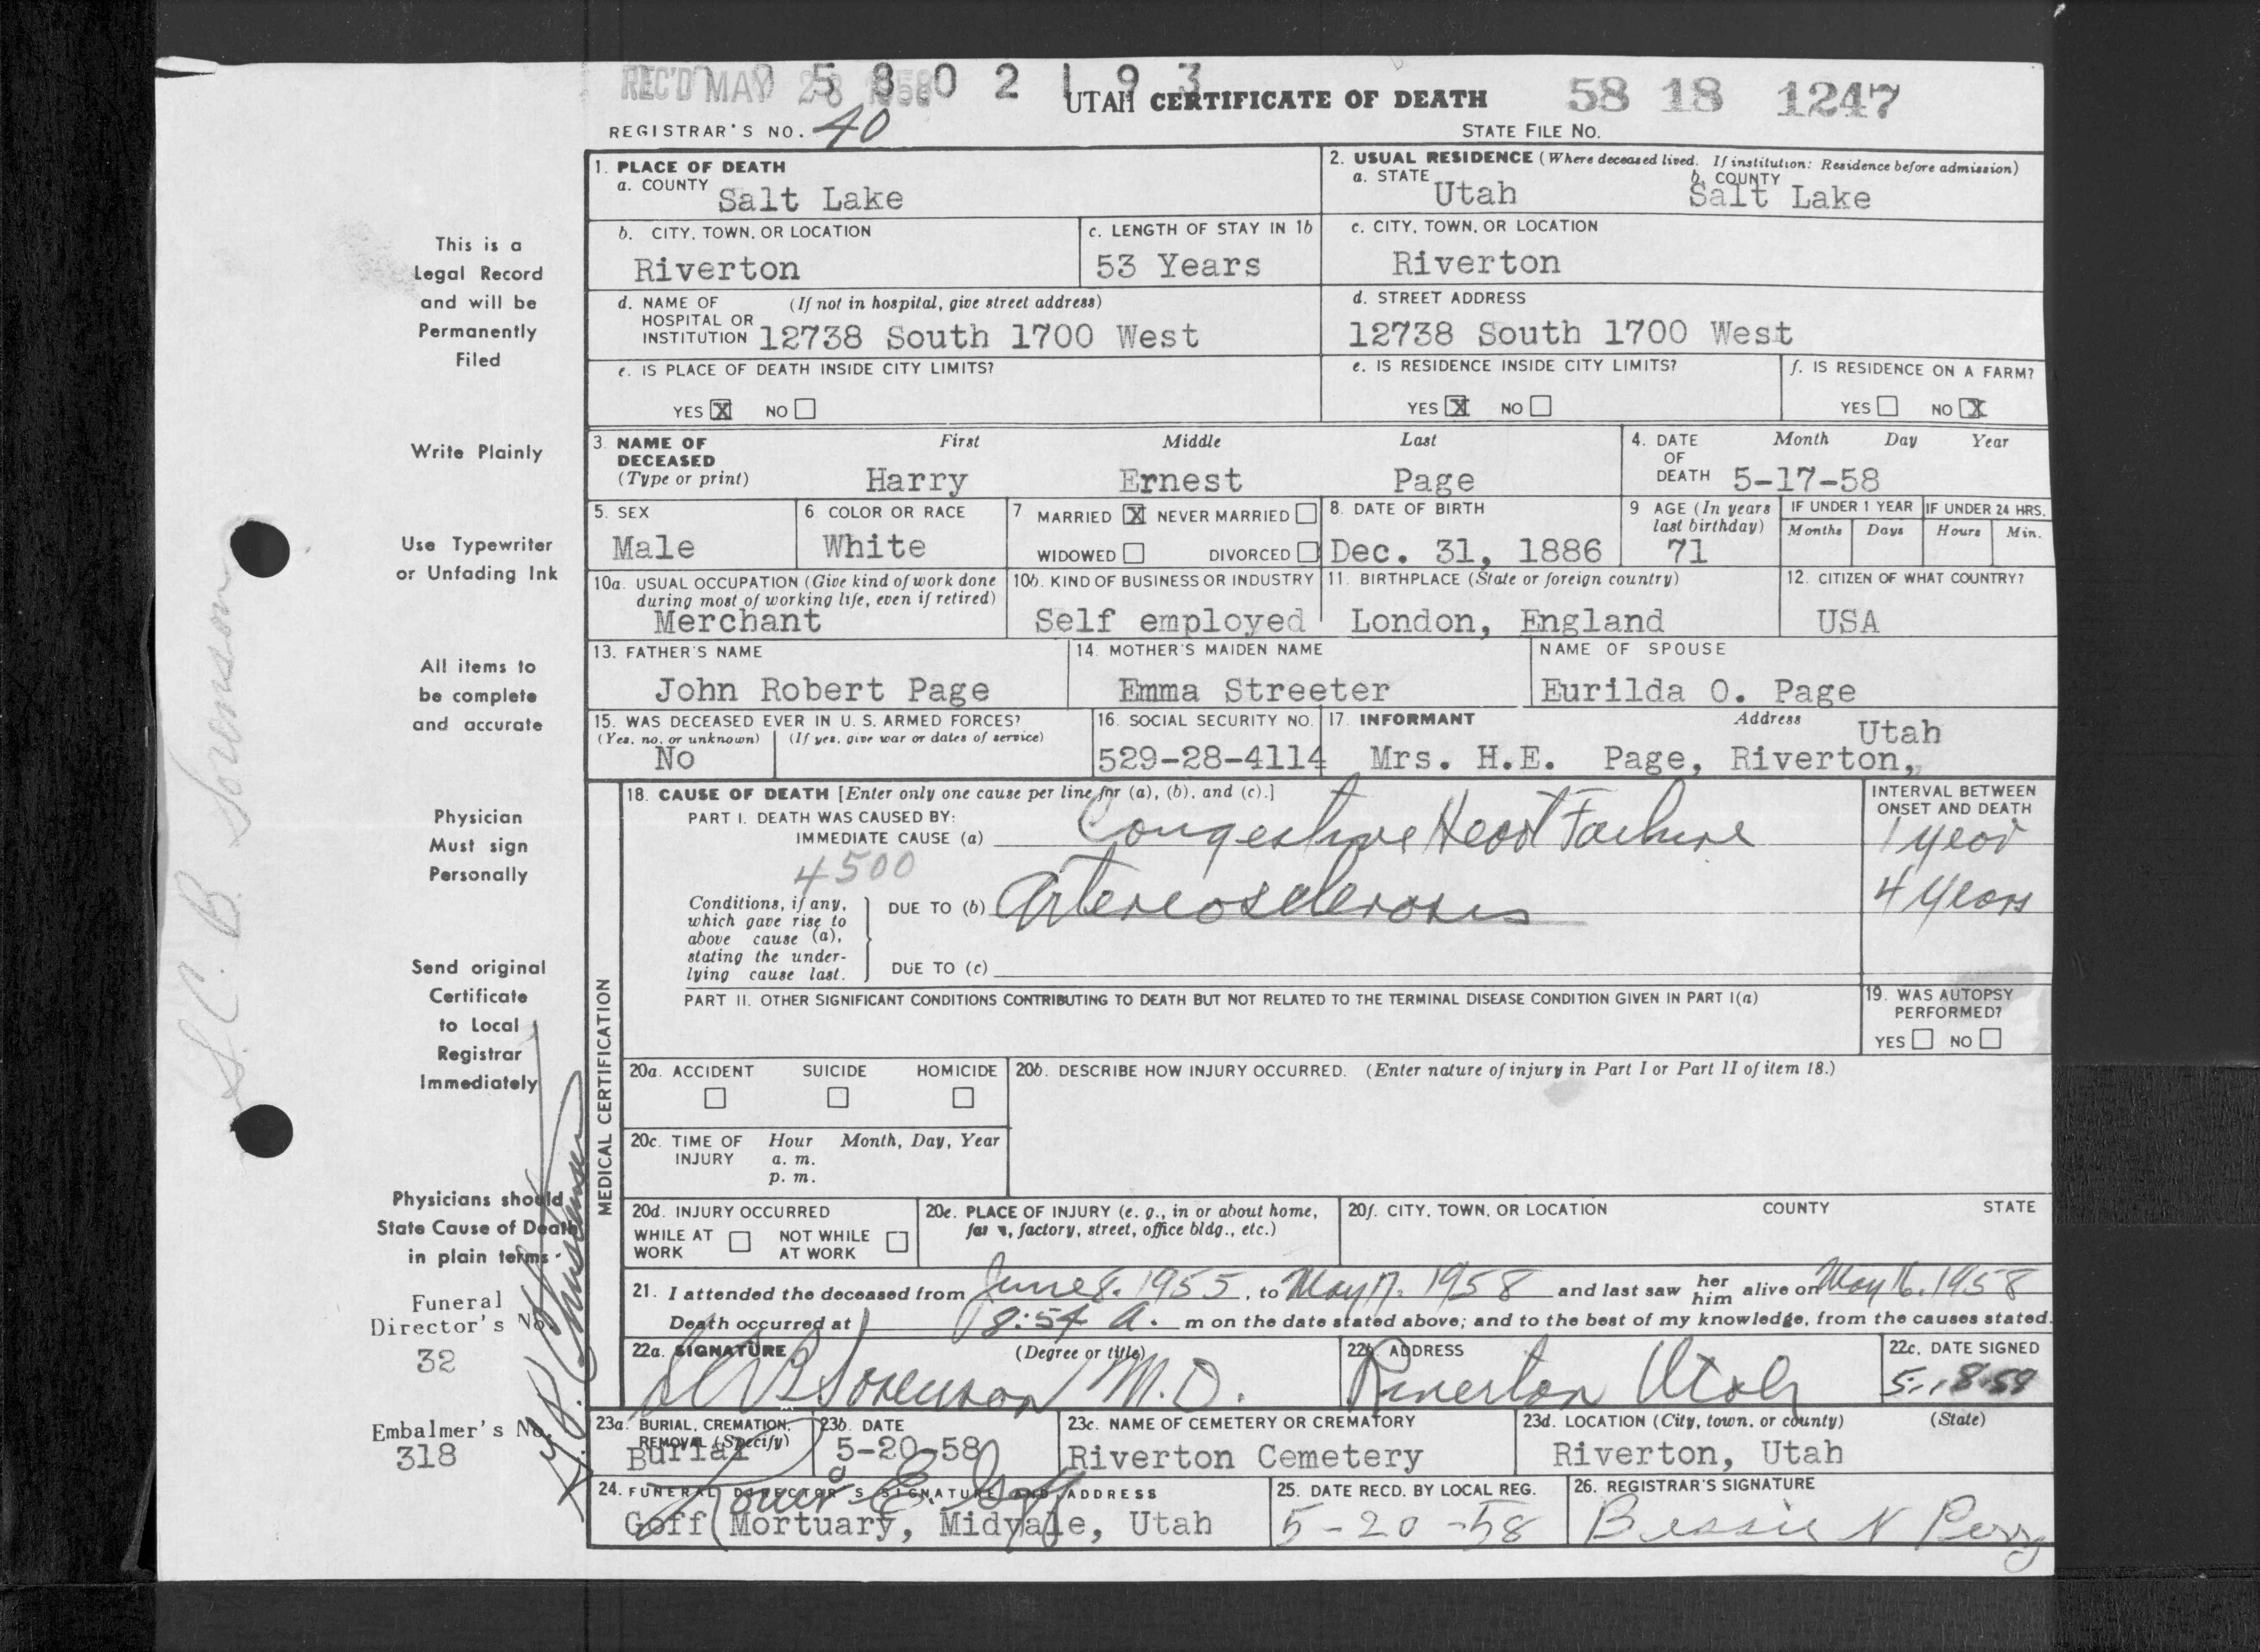 REC'D MAY 28 1958
5802193
UTAH CERTIFICATE OF DEATH
58 18 1247
REGISTRAR'S NO. 40
STATE FILE NO.
This is a
Legal Record
and will be
Permanently
Filed
Write Plainly
Use Typewriter
or Unfading Ink
All items to
be complete
and accurate
Physician
Must sign
Personally
Send original
Certificate
to Local
Registrar
Immediately
Physicians should
State Cause of Death
in plain terms
Funeral
Director's No.
32
Embalmer's No.
318
S. C. B. Sorenson
1. PLACE OF DEATH
a. COUNTY Salt Lake
2. USUAL RESIDENCE (Where deceased lived. If institution: Residence before admission)
a. STATE Utah b. COUNTY Salt Lake
b. CITY, TOWN, OR LOCATION Riverton
c. LENGTH OF STAY IN 1b 53 Years
c. CITY, TOWN, OR LOCATION Riverton
d. NAME OF HOSPITAL OR INSTITUTION (If not in hospital, give street address) 12738 South 1700 West
d. STREET ADDRESS 12738 South 1700 West
e. IS PLACE OF DEATH INSIDE CITY LIMITS?
YES X NO
e. IS RESIDENCE INSIDE CITY LIMITS?
YES X NO
f. IS RESIDENCE ON A FARM?
YES NO X
3. NAME OF DECEASED (Type or print) First Middle Last
Harry Ernest Page
4. DATE OF DEATH Month Day Year
5-17-58
5. SEX Male
6 COLOR OR RACE White
7 MARRIED X NEVER MARRIED
WIDOWED DIVORCED
8. DATE OF BIRTH Dec. 31, 1886
9 AGE (In years last birthday) 71
IF UNDER 1 YEAR Months Days
IF UNDER 24 HRS. Hours Min.
10a. USUAL OCCUPATION (Give kind of work done during most of working life, even if retired) Merchant
10b. KIND OF BUSINESS OR INDUSTRY Self employed
11. BIRTHPLACE (State or foreign country) London, England
12. CITIZEN OF WHAT COUNTRY? USA
13. FATHER'S NAME John Robert Page
14. MOTHER'S MAIDEN NAME Emma Streeter
NAME OF SPOUSE Eurilda O. Page
15. WAS DECEASED EVER IN U. S. ARMED FORCES?
(Yes, no, or unknown) (If yes, give war or dates of service)
No
16. SOCIAL SECURITY NO. 529-28-4114
17. INFORMANT Address
Mrs. H.E. Page, Riverton, Utah
MEDICAL CERTIFICATION
18. CAUSE OF DEATH [Enter only one cause per line for (a), (b), and (c).]
INTERVAL BETWEEN ONSET AND DEATH
PART I. DEATH WAS CAUSED BY:
IMMEDIATE CAUSE (a) Congestive Heart Failure 1 year
4500
Conditions, if any, which gave rise to above cause (a), stating the underlying cause last.
DUE TO (b) Artereosclerosis 4 years
DUE TO (c)
PART II. OTHER SIGNIFICANT CONDITIONS CONTRIBUTING TO DEATH BUT NOT RELATED TO THE TERMINAL DISEASE CONDITION GIVEN IN PART I(a)
19. WAS AUTOPSY PERFORMED?
YES NO
20a. ACCIDENT SUICIDE HOMICIDE
20b. DESCRIBE HOW INJURY OCCURRED. (Enter nature of injury in Part I or Part II of item 18.)
20c. TIME OF INJURY Hour a. m. p. m. Month, Day, Year
20d. INJURY OCCURRED
WHILE AT WORK NOT WHILE AT WORK
20e. PLACE OF INJURY (e. g., in or about home, farm, factory, street, office bldg., etc.)
20f. CITY, TOWN, OR LOCATION COUNTY STATE
21. I attended the deceased from June 8. 1955, to May 17. 1958 and last saw her him alive on May 16. 1958
Death occurred at 8:54 A. m on the date stated above; and to the best of my knowledge, from the causes stated.
22a. SIGNATURE (Degree or title)
S C B Sorenson M.D.
22b. ADDRESS Riverton Utah
22c. DATE SIGNED
23a. BURIAL, CREMATION, REMOVAL (Specify) Burial
23b. DATE 5-20-58
23c. NAME OF CEMETERY OR CREMATORY Riverton Cemetery
23d. LOCATION (City, town, or county) (State)
Riverton, Utah
24. FUNERAL DIRECTOR'S SIGNATURE AND ADDRESS
Goff Mortuary, Midvale, Utah
25. DATE RECD. BY LOCAL REG. 5-20-58
26. REGISTRAR'S SIGNATURE Bessie N Perry